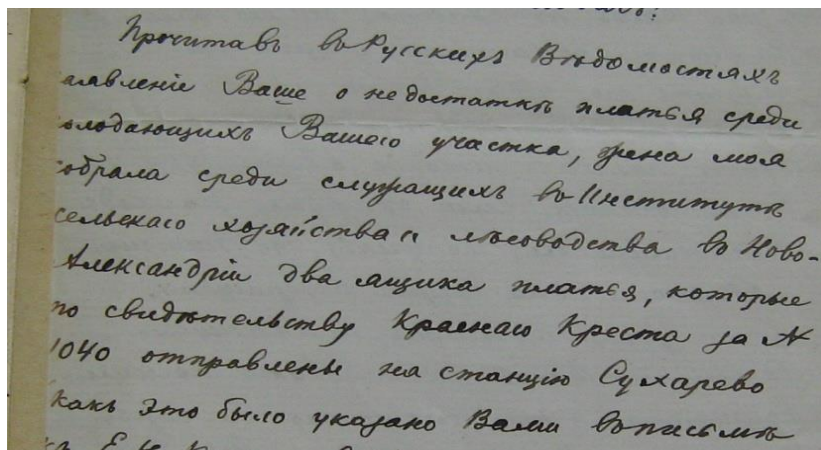 Прочитавъ въ Русскихъ Вѣдомостяхъ
аявленіе Ваше о недостаткѣ платья среди
олодающихъ Вашего участка, жена моя
обрала среди служащихъ въ Институтѣ
сельскаго хозяйства и лѣсоводства въ Ново-
Александріи два ящика платья, которые
по свидѣтельству Краснаго Креста за №
1040 отправлены на станцію Сухарево
какъ это было указано Вами въ письмѣ
къ Е. Н.